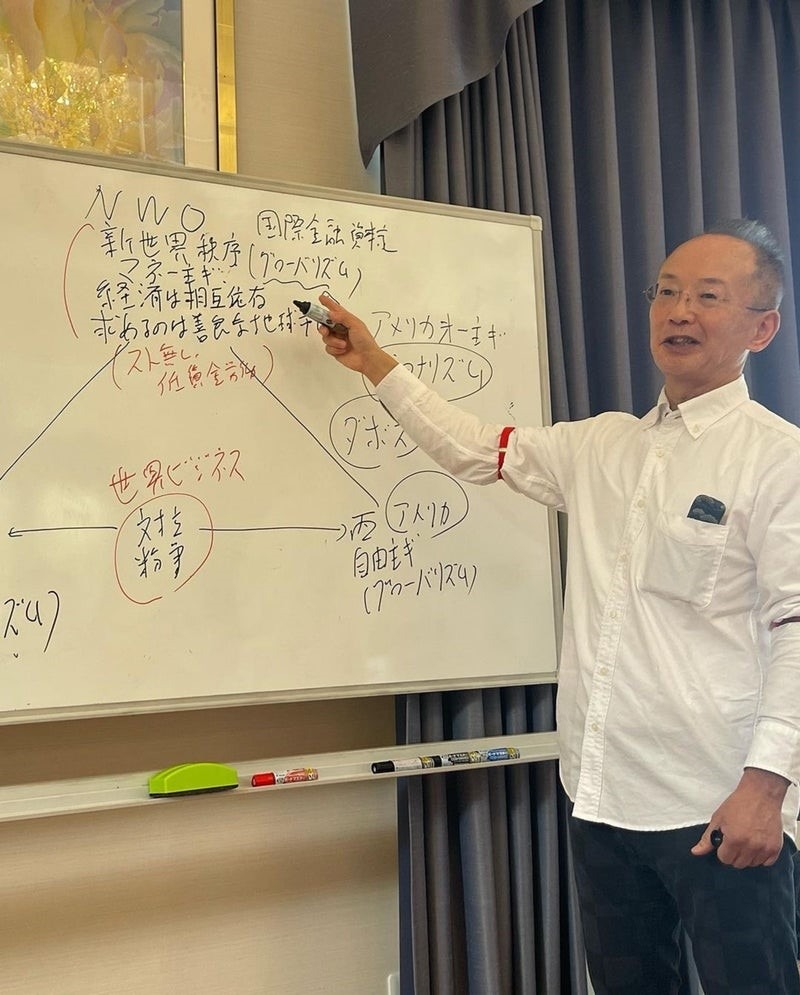 NWO
国際金融資本
新世界秩序
(グローバリズム)
マネー主ギ
経済は相互依存
求めるのは善良な地球市
アメリカ第一主ギ
ナショナリズム
(スト無し、
低賃金労働)
ダボス
世界ビジネス
対立
紛争
西
アメリカ
自由主ギ
(グローバリズム)
ズム)